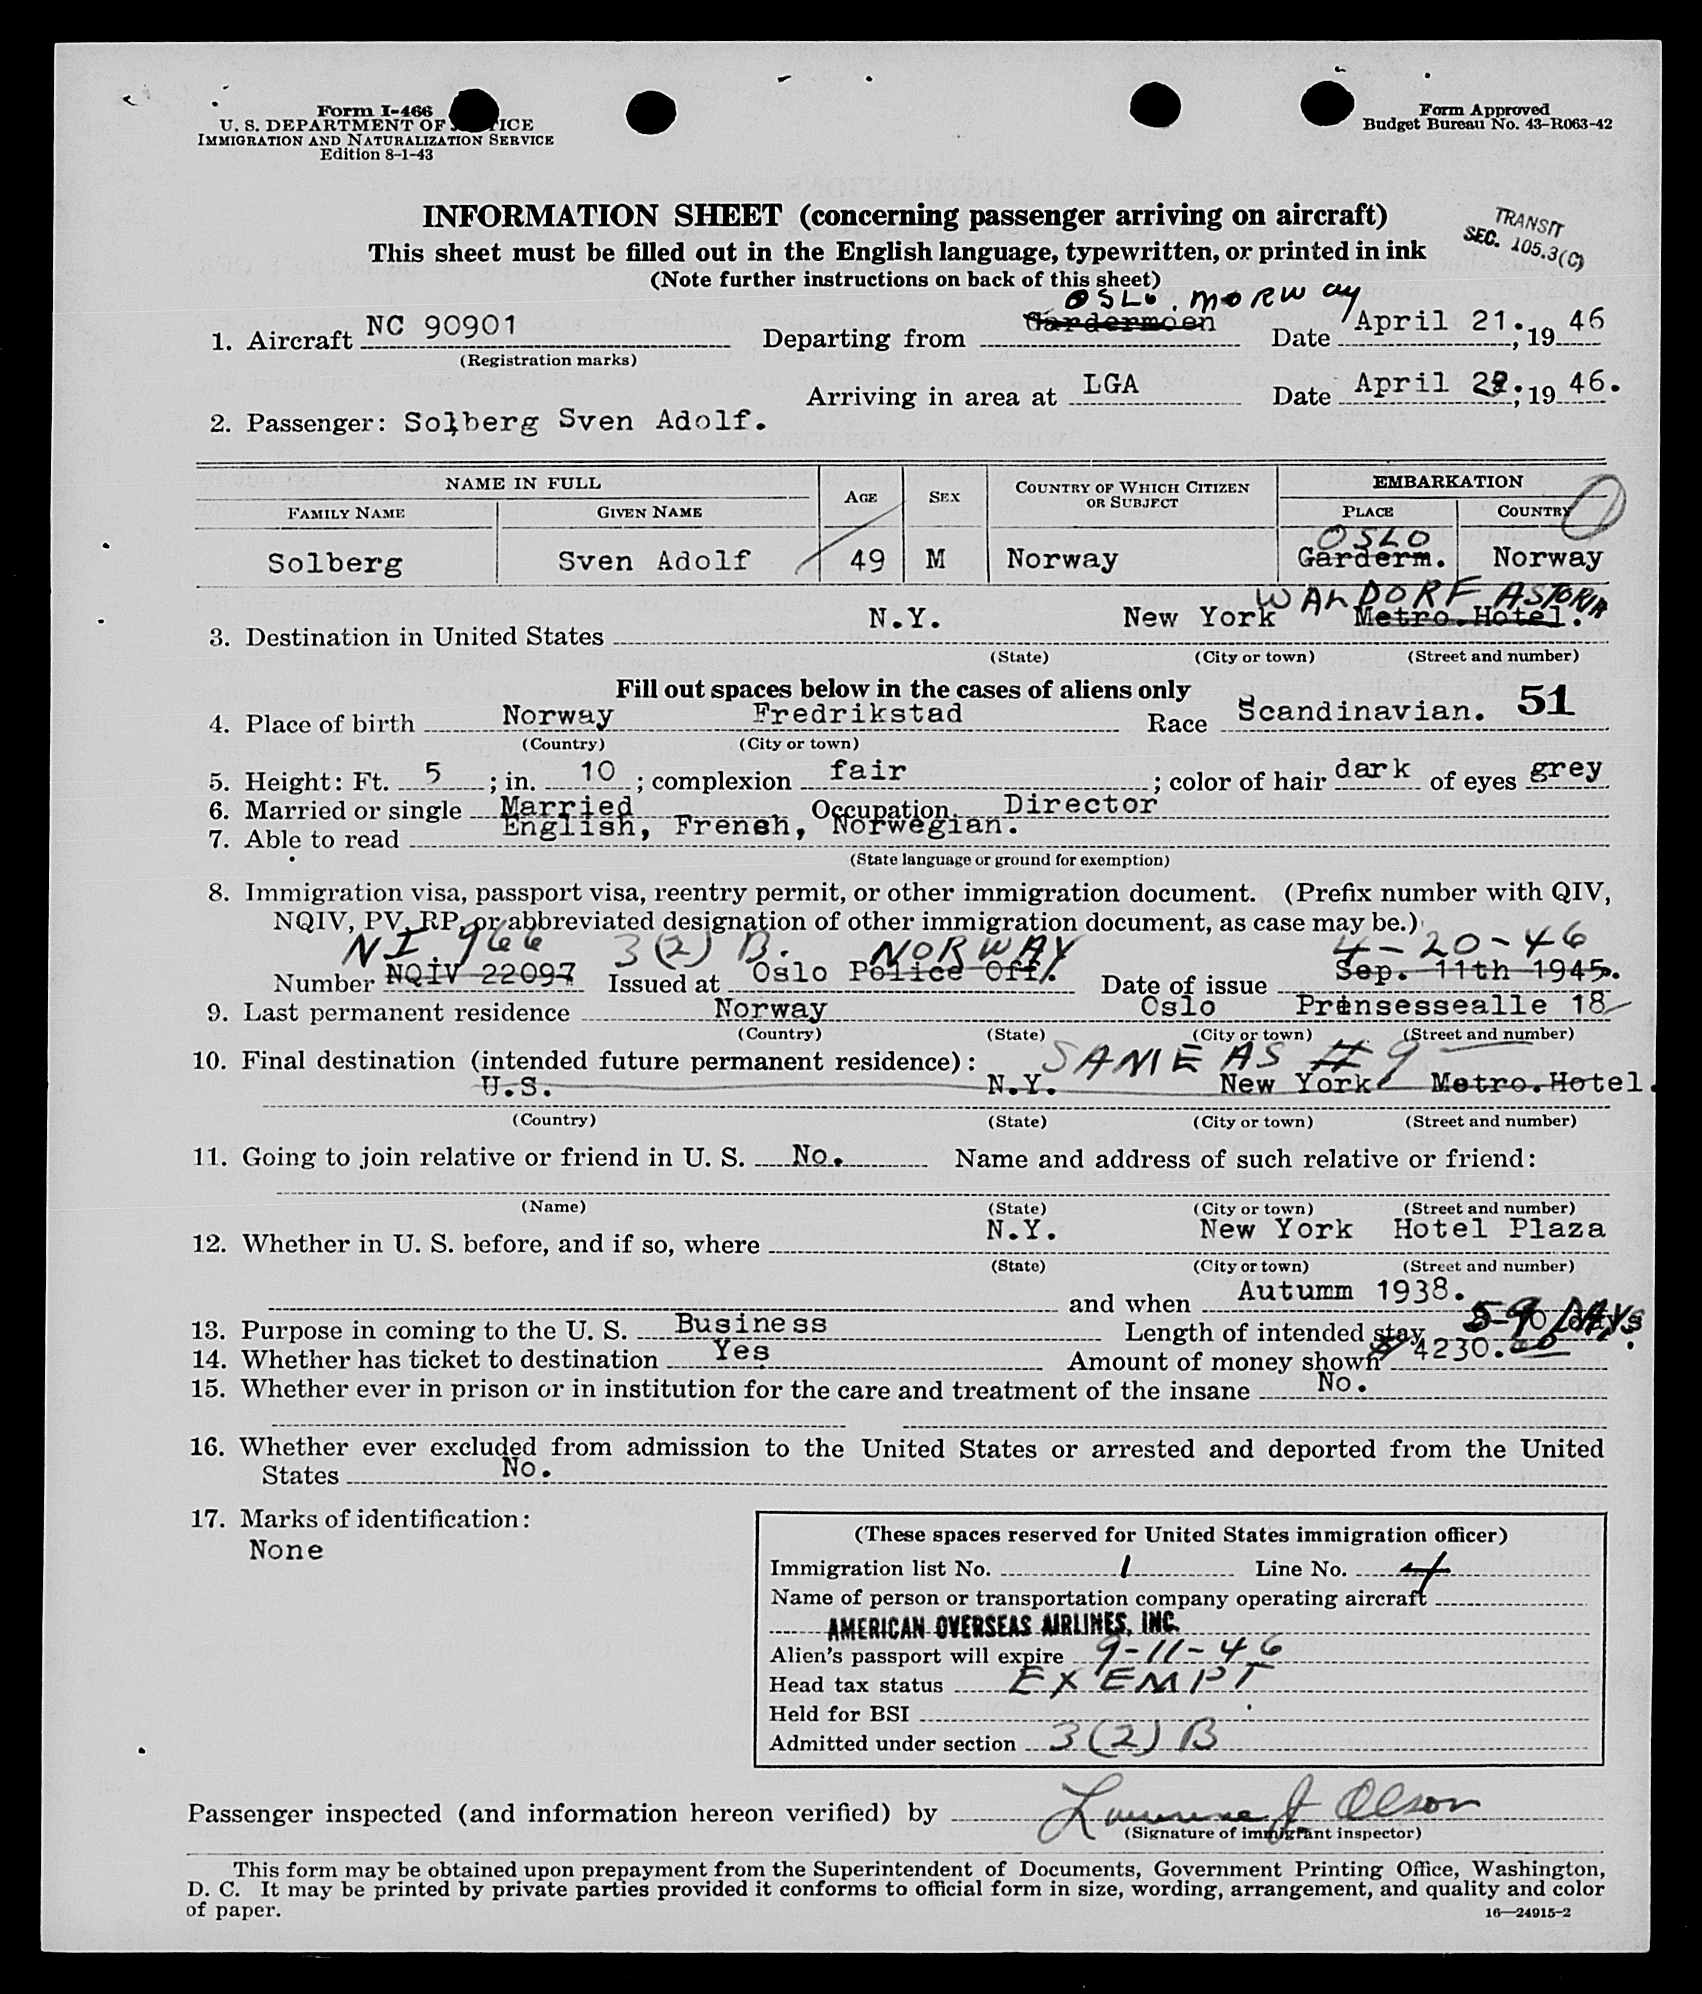 Form I-466
U. S. DEPARTMENT OF JUSTICE
IMMIGRATION AND NATURALIZATION SERVICE
Edition 8-1-43
Form Approved
Budget Bureau No. 43-R063-42
INFORMATION SHEET (concerning passenger arriving on aircraft)
This sheet must be filled out in the English language, typewritten, or printed in ink
(Note further instructions on back of this sheet)
TRANSIT
SEC. 105.3(C)
OSLO, NORWAY
1. Aircraft NC 90901 Departing from Gardermoen Date April 21., 19 46
(Registration marks)
Arriving in area at LGA Date April 22., 19 46.
2. Passenger: Solberg Sven Adolf.
NAME IN FULL AGE SEX COUNTRY OF WHICH CITIZEN OR SUBJECT EMBARKATION
FAMILY NAME GIVEN NAME PLACE COUNTRY
OSLO
Solberg Sven Adolf 49 M Norway Garderm. Norway
WALDORF ASTORIA
3. Destination in United States N.Y. New York Metro.Hotel.
(State) (City or town) (Street and number)
Fill out spaces below in the cases of aliens only
4. Place of birth Norway Fredrikstad Race Scandinavian. 51
(Country) (City or town)
5. Height: Ft. 5 ; in. 10 ; complexion fair ; color of hair dark of eyes grey
6. Married or single Married Occupation Director
7. Able to read English, French, Norwegian.
(State language or ground for exemption)
8. Immigration visa, passport visa, reentry permit, or other immigration document. (Prefix number with QIV,
NQIV, PV, RP, or abbreviated designation of other immigration document, as case may be.)
NI 966 3(2) B. NORWAY 4-20-46
Number NQIV 22097 Issued at Oslo Police Off. Date of issue Sep. 11th 1945.
9. Last permanent residence Norway Oslo Prinsessealle 18
(Country) (State) (City or town) (Street and number)
10. Final destination (intended future permanent residence): SAME AS # 9
U.S. N.Y. New York Metro.Hotel.
(Country) (State) (City or town) (Street and number)
11. Going to join relative or friend in U. S. No. Name and address of such relative or friend:
(Name) (State) (City or town) (Street and number)
12. Whether in U. S. before, and if so, where N.Y. New York Hotel Plaza
(State) (City or town) (Street and number)
and when Autumm 1938.
13. Purpose in coming to the U. S. Business Length of intended stay DAYS
14. Whether has ticket to destination Yes Amount of money shown $ 4230.00
15. Whether ever in prison or in institution for the care and treatment of the insane No.
16. Whether ever excluded from admission to the United States or arrested and deported from the United
States No.
17. Marks of identification:
None
(These spaces reserved for United States immigration officer)
Immigration list No. 1 Line No. 4
Name of person or transportation company operating aircraft
AMERICAN OVERSEAS AIRLINES, INC.
Alien's passport will expire 9-11-46
Head tax status EXEMPT
Held for BSI
Admitted under section 3(2) B
Passenger inspected (and information hereon verified) by Lawrence J Olson
(Signature of immigrant inspector)
This form may be obtained upon prepayment from the Superintendent of Documents, Government Printing Office, Washington,
D. C. It may be printed by private parties provided it conforms to official form in size, wording, arrangement, and quality and color
of paper.
16—24915-2